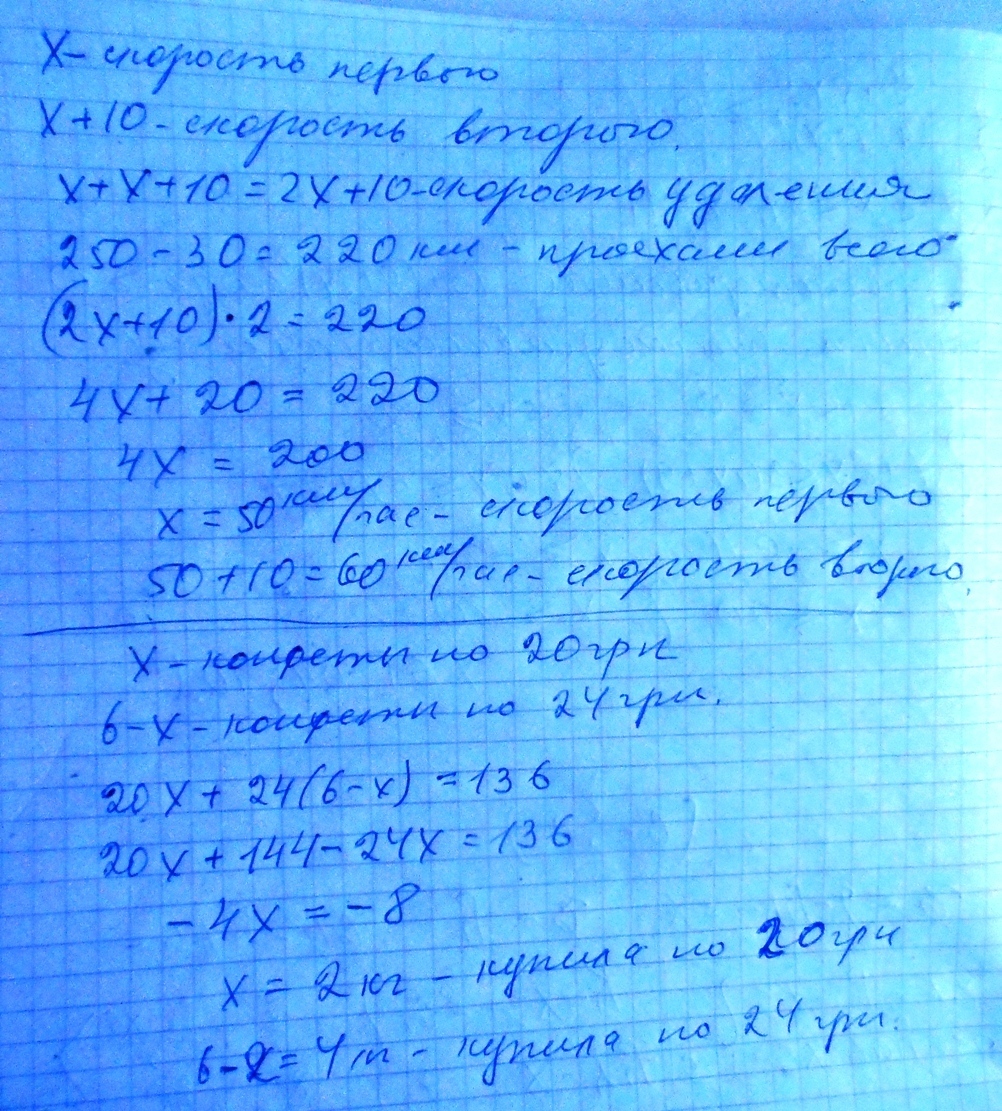 x - скорость первого
x+10 - скорость второго.
x+x+10=2x+10 - скорость удаления
250-30=220 км - проехали всего
(2x+10)·2=220
4x+20=220
4x=200
x=50 км/час - скорость первого
50+10=60 км/час - скорость второго.
x - конфеты по 20 грн
6-x - конфеты по 24 грн.
20x+24(6-x)=136
20x+144-24x=136
-4x=-8
x=2 кг - купила по 20 грн
6-2=4 кг - купила по 24 грн.